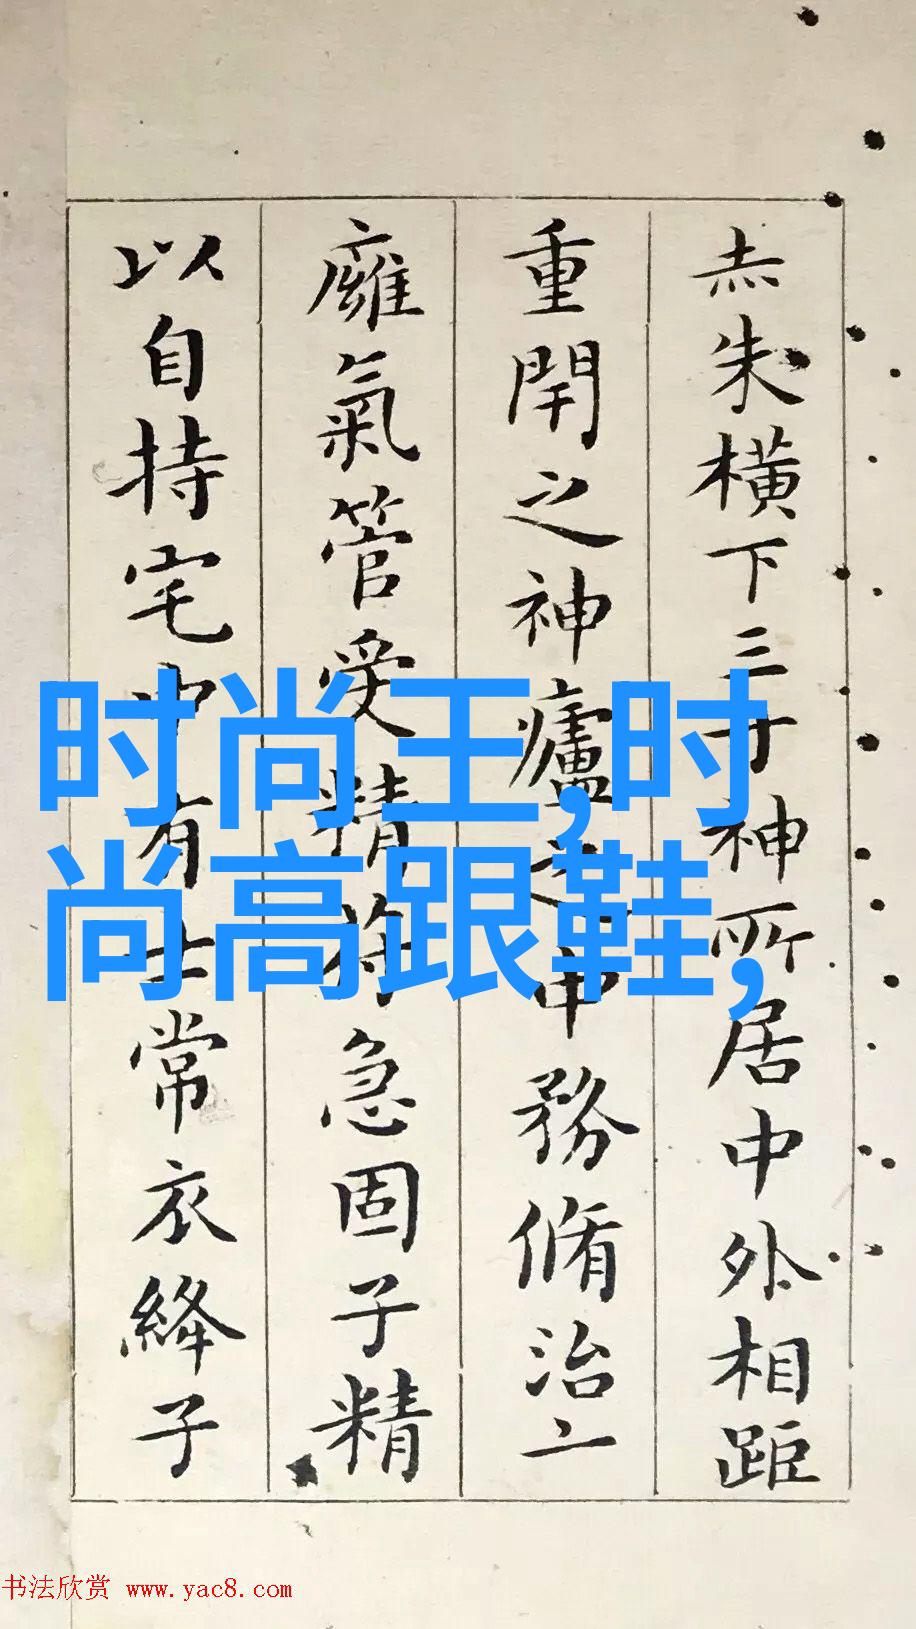 赤朱橫下三寸神所居中外相距
重閇之神廬之中務脩治
廱氣管受精符急固子精
以自持宅中有士常衣絳子
时尚王,时
尚高跟鞋,
书法欣赏 www.yac8.com